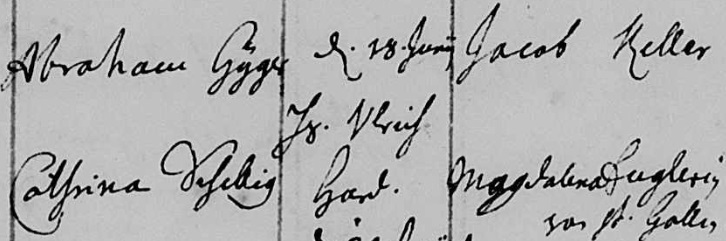 Abraham Gÿger d. 18. Junÿ Jacob Keller
Js. Ulrich
Cathrina Schelbig Hard. Magdalena Zuglerin
von St. Gallen